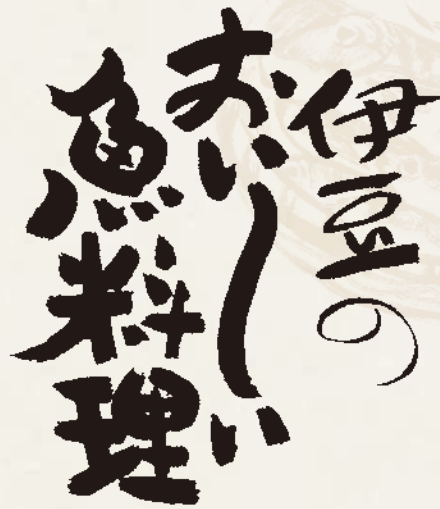 伊豆の
おいしい
魚料理